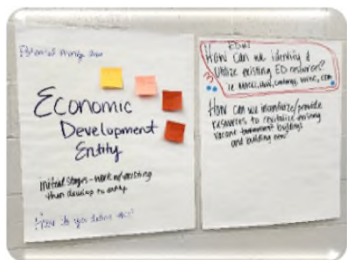 Economic
Development
Entity
initial stages - work w/ existing
then develop to entity
How do you define this?
How can we identify &
utilize existing ED
How can we incentivize/provide
resources to revitalize existing
vacant buildings
and building new?